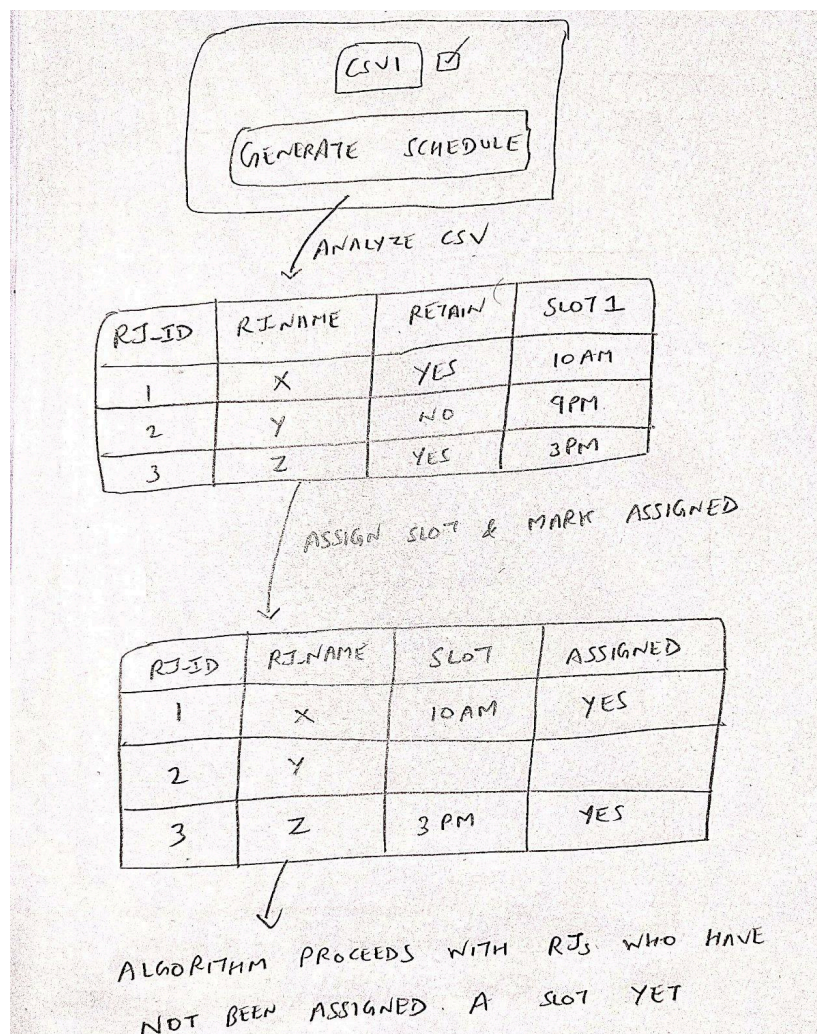 CSV1
GENERATE SCHEDULE
ANALYZE CSV
RJ_ID RJ_NAME RETAIN SLOT 1
1 X YES 10 AM
2 Y NO 9PM
3 Z YES 3PM
ASSIGN SLOT & MARK ASSIGNED
RJ_ID RJ_NAME SLOT ASSIGNED
1 X 10 AM YES
2 Y
3 Z 3 PM YES
ALGORITHM PROCEEDS WITH RJs WHO HAVE
NOT BEEN ASSIGNED A SLOT YET